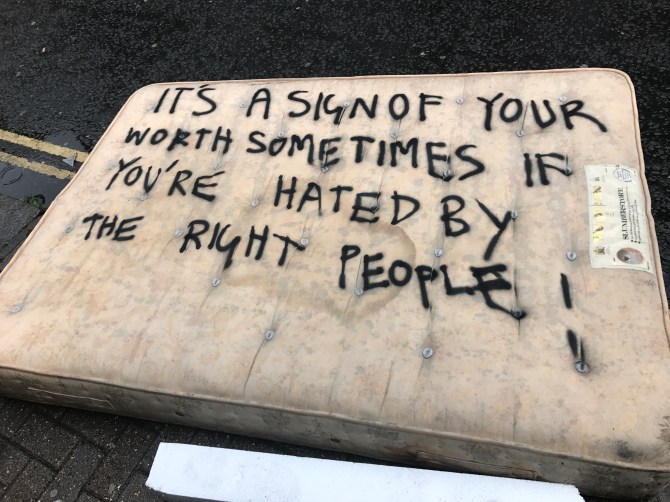 IT'S A SIGN OF YOUR
WORTH SOMETIMES IF
YOU'RE HATED BY
THE RIGHT PEOPLE!!
SLUMBERSTORE